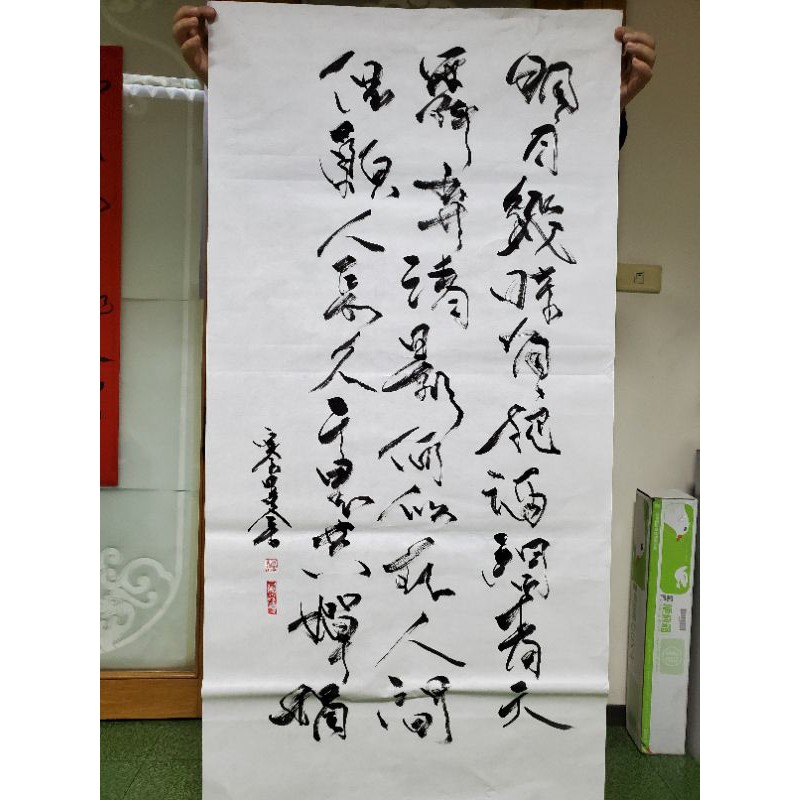 明月幾時有把酒問青天
舞弄清影何似在人間
但願人長久千里共嬋娟